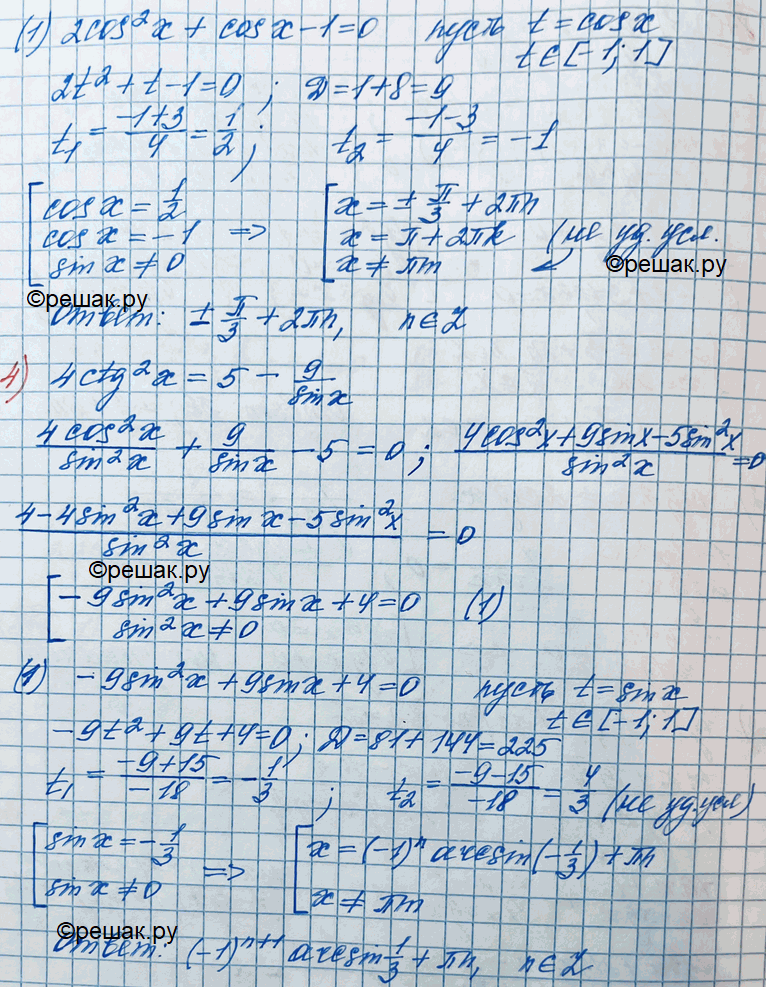 (1) 2cos²x + cosx - 1 = 0 пусть t = cosx
t ∈ [-1; 1]
2t² + t - 1 = 0 ; D = 1 + 8 = 9
t₁ = (-1+3)/4 = 1/2 ; t₂ = (-1-3)/4 = -1
[ cosx = 1/2 [ x = ± π/3 + 2πn
cosx = -1 => x = π + 2πk (не уд. усл.
sinx ≠ 0 x ≠ πm ©решак.ру
©решак.ру
Ответ: ± π/3 + 2πn, n ∈ Z
4) 4ctg²x = 5 - 9/sinx
4cos²x/sin²x + 9/sinx - 5 = 0 ; (4cos²x + 9sinx - 5sin²x)/sin²x = 0
(4 - 4sin²x + 9sinx - 5sin²x)/sin²x = 0
©решак.ру
[ -9sin²x + 9sinx + 4 = 0 (1)
sin²x ≠ 0
(1) -9sin²x + 9sinx + 4 = 0 пусть t = sinx
t ∈ [-1; 1]
-9t² + 9t + 4 = 0 ; D = 81 + 144 = 225
t₁ = (-9+15)/-18 = -1/3 ; t₂ = (-9-15)/-18 = 4/3 (не уд. усл)
[ sinx = -1/3 => [ x = (-1)ⁿ arcsin(-1/3) + πn
sinx ≠ 0 x ≠ πm
©решак.ру
Ответ: (-1)ⁿ⁺¹ arcsin 1/3 + πn, n ∈ Z